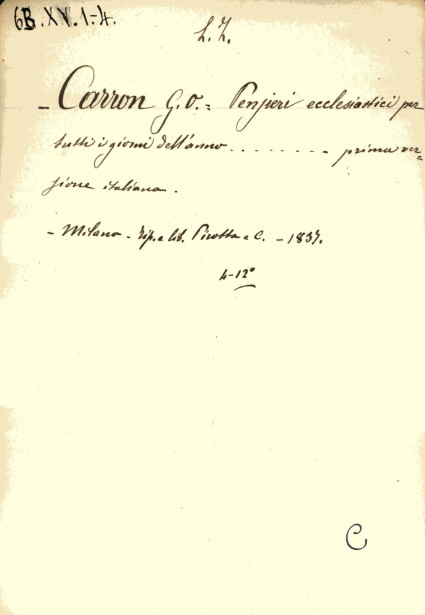 6B.XV.1-4.
L. Z.
- Carron G. O. = Pensieri ecclesiastici per
tutti i giorni dell'anno . . . . . . . . prima ver=
sione italiana.
- Milano - Tip. e lib. Pirotta e C. - 1837.
4-12°
C